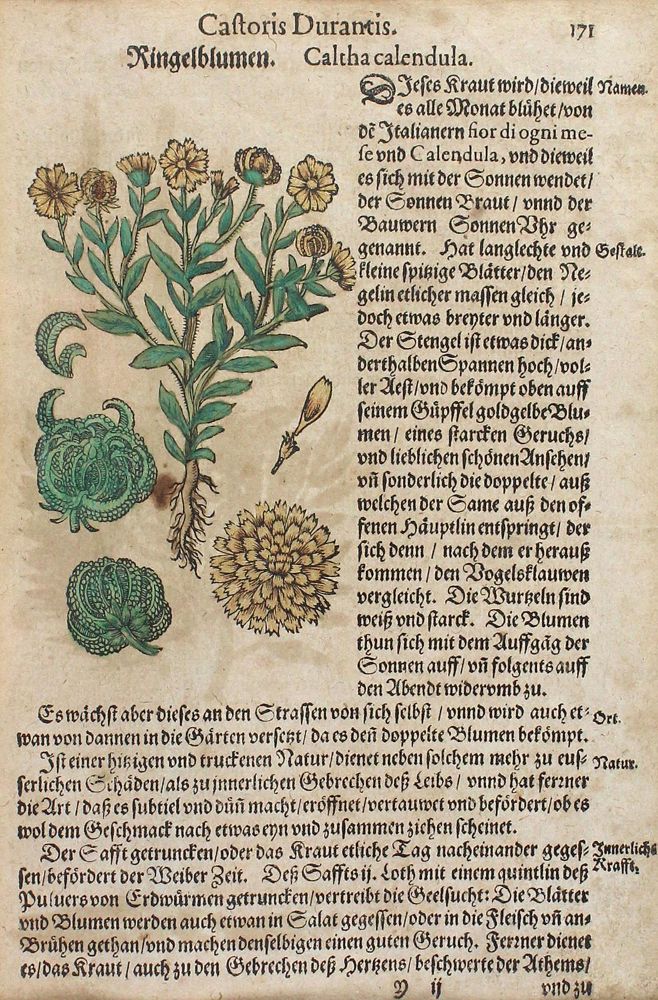 Castoris Durantis.
171
Ringelblumen. Caltha calendula.
DIeses Kraut wird/dieweil
Namen.
es alle Monat blühet/von
dē Italianern fior di ogni me-
se vnd Calendula, vnd dieweil
es sich mit der Sonnen wendet/
der Sonnen Braut/ vnnd der
Bauwern Sonnen Vhr ge-
genannt. Hat langlechte vnd
Gestalt.
kleine spitzige Blätter/den Ne-
gelin etlicher massen gleich / je-
doch etwas breyter vnd länger.
Der Stengel ist etwas dick/an-
derthalben Spannen hoch/vol-
ler Aest/vnd bekömpt oben auff
seinem Güpffel goldgelbe Blu-
men / eines starcken Geruchs/
vnd lieblichen schönen Ansehen/
vñ sonderlich die doppelte / auß
welchen der Same auß den of-
fenen Häuptlin entspringt/ der
sich denn / nach dem er herauß
kommen / den Vogelsklauwen
vergleicht. Die Wurtzeln sind
weiß vnd starck. Die Blumen
thun sich mit dem Auffgāg der
Sonnen auff/ vñ folgents auff
den Abendt widervmb zu.
Es wächst aber dieses an den Strassen von sich selbst / vnnd wird auch et-
Ort.
wan von dannen in die Gärten versetzt/ da es deñ doppelte Blumen bekömpt.
Ist einer hitzigen vnd truckenen Natur/dienet neben solchem mehr zu eus-
Natur.
serlichen Schäden/als zu jnnerlichen Gebrechen deß Leibs / vnnd hat ferrner
die Art / daß es subtiel vnd düñ macht/eröffnet/vertauwet vnd befördert/ob es
wol dem Geschmack nach etwas eyn vnd zusammen ziehen scheinet.
Der Safft getruncken/oder das Kraut etliche Tag nacheinander geges-
Jnnerliche
Krafft.
sen/befördert der Weiber Zeit. Deß Saffts ij. Loth mit einem quintlin deß
Puluers von Erdwürmen getruncken/vertreibt die Geelsucht: Die Blätter
vnd Blumen werden auch etwan in Salat gegessen/oder in die Fleisch vñ an-
Brühen gethan/vnd machen denselbigen einen guten Geruch. Ferrner dienet
es/das Kraut / auch zu den Gebrechen deß Hertzens/ beschwerte der Athems/
ij
vnd zu